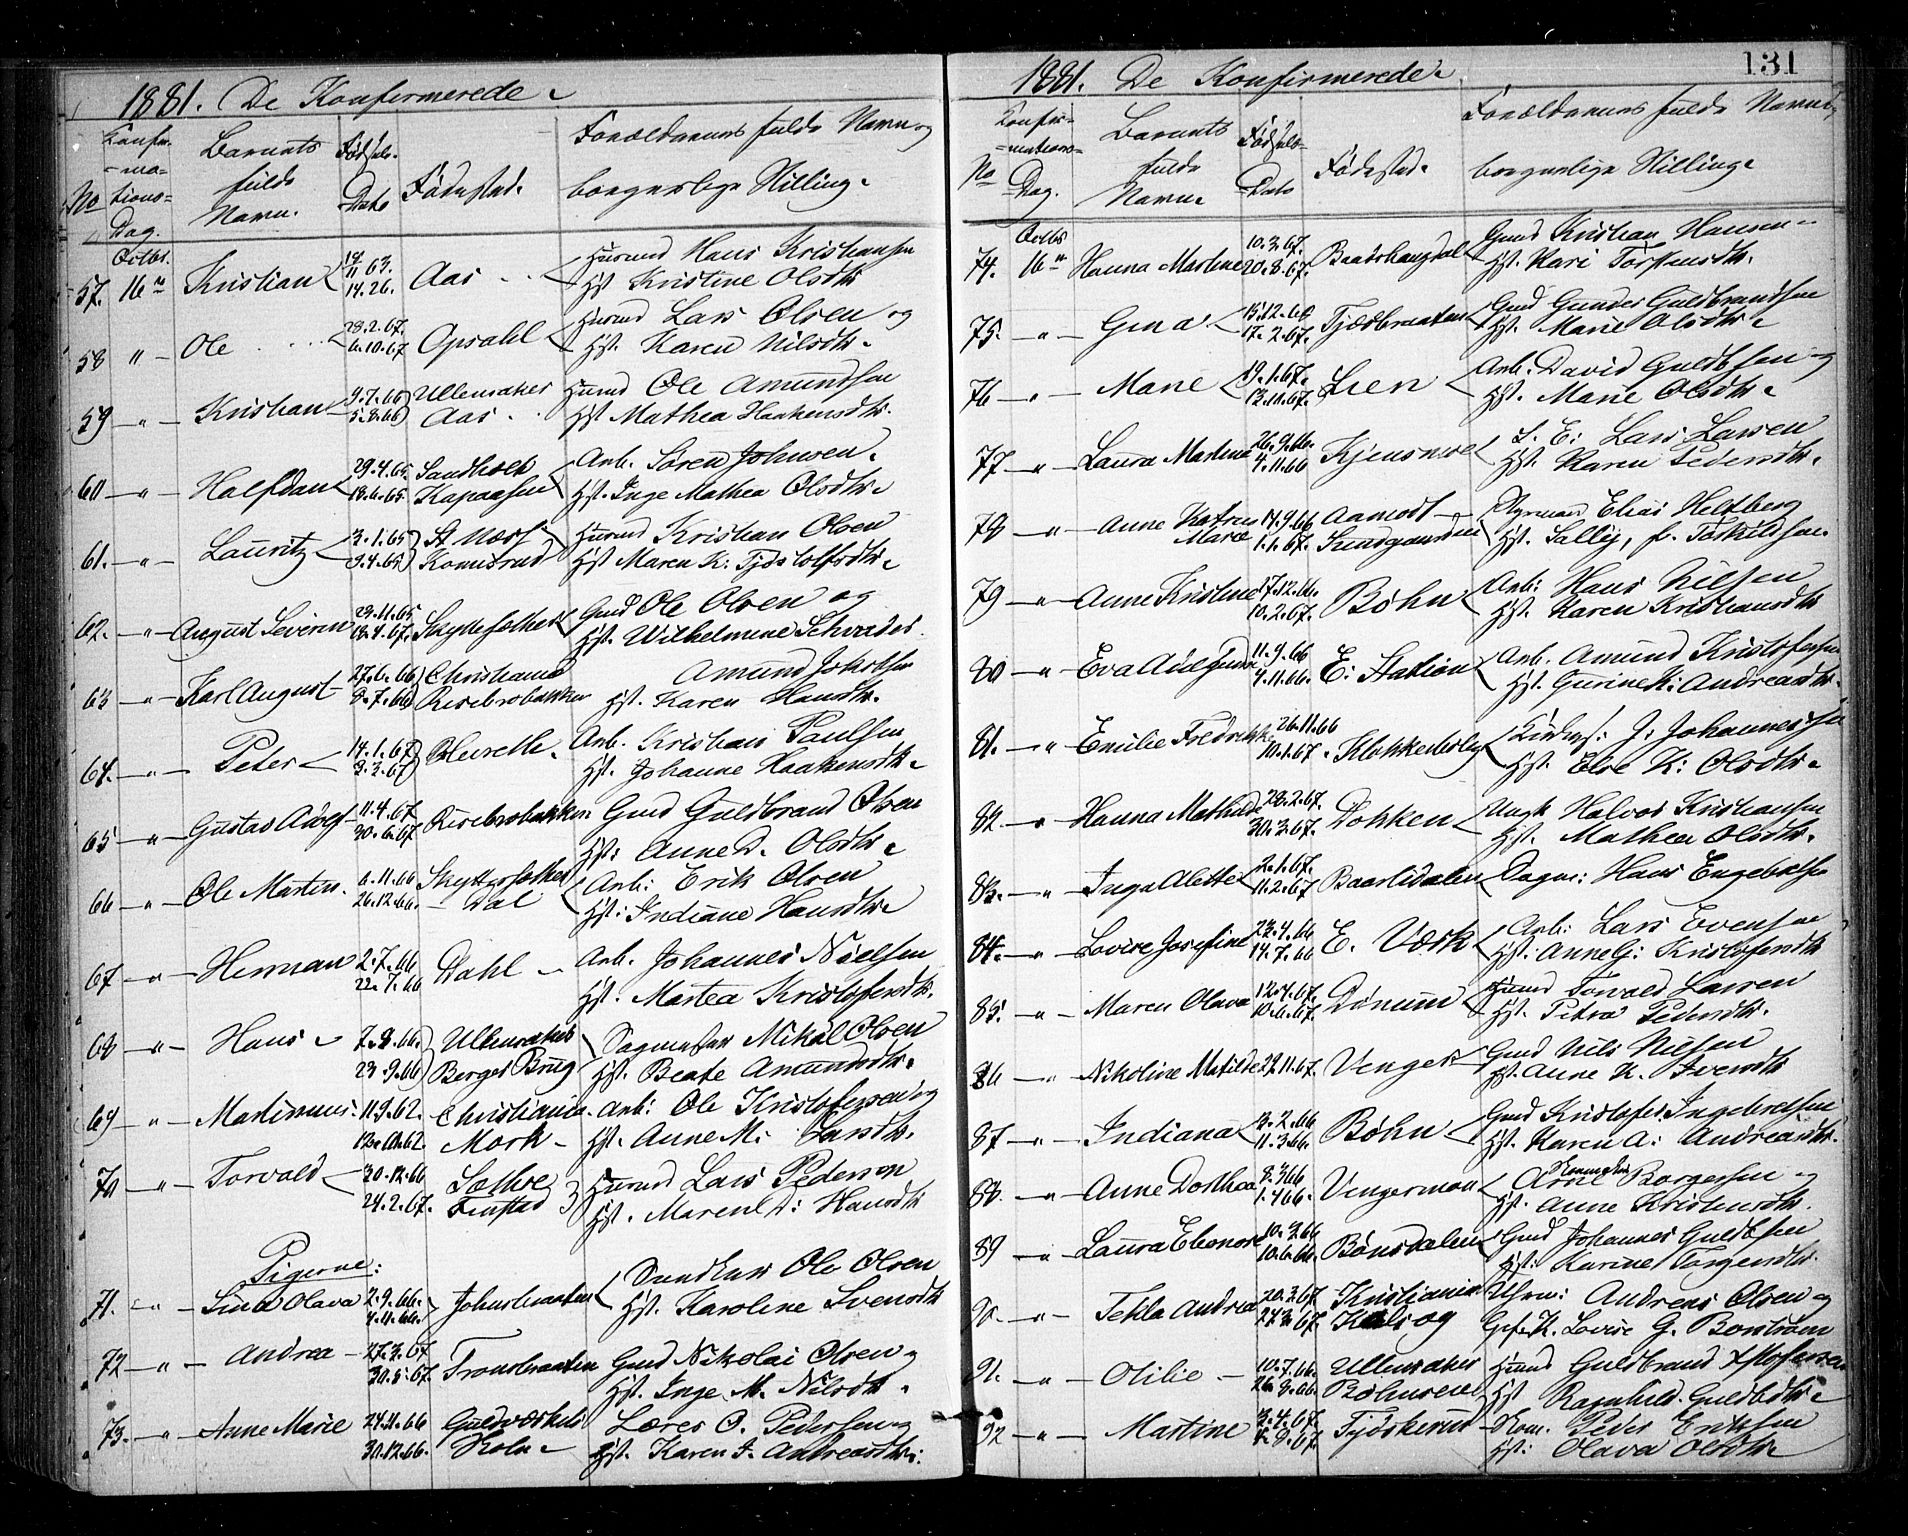 1881. De Konfirmerede.
No
Konfir-
-ma-
tions-
Dag.
Barnets
fulde
Navn.
Fødsels-
Dato
Fødested.
Forældrenes fulde Navn og
borgerlige Stilling.
Octbr.
57. 16 Kristian 11 63. 14.26. Aas Huusmd Hans Kristiansen
Hst Kristine Olsdtr.
58 " Ole 28.2.67. 6.10.67 Opsahl Huusmd Lars Olsen og
Hst. Karen Nilsdtr.
59 " Kristian 9.7.66 5.8.66 Ullensaker Aas Huusmd Ole Amundsen
Hst Mathea Haakensdtr.
60 " Halfdan 29.4.65 18.6.65 Sandholt Kapaasen Arb. Søren Johnsen.
Hst. Inge Mathea Olsdtr.
61. " Lauritz 3.1.65 9.4.65 Komserud Huusmd Kristian Olsen
Hst Maren K: Tjøstolfsdtr.
62. " August Severin 23.11.65 18.4.67. Gmd Ole Olsen og
Hst. Wilhelmine Schrøder
63 " Karl August 27.6.66 8.7.66 Christiania Risebrobakken Amund Johnsen
Hst. Karen Hansdtr.
64. " Peter 14.1.67 3.3.67 Arb. Kristian Paulsen
Hst. Johanne Haakensdtr.
65 " Gustav Adolf 11.4.67. 30.6.67 Risebrobakken Gmd Guldbrand Olsen
Hst: Anne D. Olsdtr.
66 " Ole Martin. 6.11.66 26.12.66. Dal Arb: Erik Olsen
Hst: Indiane Hansdtr.
67 " Herman 2.7.66 22.7.66 Dahl Arb. Johannes Nielsen
Hst. Martea Kristofersdtr.
68 " Hans 7.8.66. 23.9.66 Ullensaker Berger Brug Dagmester Mikal Olsen
Hst. Beate Amundsdtr.
69 " Martinius. 11.9.62. Christiania. Mork Arb: Ole Kristofersen og
Hst. Anne M: Larsdtr.
70 " Torvald 30.12.66 24.2.67. Sæthre Finstad Huusmd Lars Pedersen
Hst. Maren D: Hansdtr
Pigerne:
71. " Lina Olava 2.9.66. 4.11.66. Johnsbraaten Ole Olsen
Hst. Karoline Svensdtr
72 " Andrea 27.3.67 30.5.67. Tronsbraaten Gmd Nikolai Olsen og
Hst. Inge M. Nilsdtr.
73. " Anne Marie 24.11.66 30.12.66. Guldverkets Skole Lærer O. Pedersen og
Hst. Karen F. Andreasdtr:
1881. De Konfirmerede.
131
No
Konfir-
-mations-
Dag.
Barnets
fulde
Navn.
Fødsels-
Dato
Fødested.
Forældrenes fulde Navn,
borgerlige Stilling.
Octbr
74. 16 Hanna Martine 10.3.67. 20.8.67. Baadshaugdal Gmd Kristian Hansen
Hst. Kari Torstensdtr.
75. " Gina 15.12.66 17.2.67. Tjædbraaten Gmd Gunder Guldbrandsen
Hst. Marie Olsdtr.
76 " Marie 19.1.67. 13.10.67. Lien Arb. David Guldbsen og
Hst. Marie Olsdtr.
77 " Laura Martine 26.9.66. 4.11.66 S. E: Lars Larsen
Hst. Karen Pedersdtr.
78 " Anne Katrine Marie 14.9.66 1.1.67. Aamodt Sundgaarden Styrmand Elias Heltberg
Hst. Sally, f. Torkildsen.
79 " Anne Kristine 27.12.66. 10.2.67. Bøhn Arb: Hans Nilsen
Hst. Karen Kristiansdtr
80 " Eva 11.9.66 4.11.66. E: Station Arb. Amund Kristofersen
Hst. Gurine K: Andreasdtr.
81. " Emilie Fredrikke 26.11.66 10.1.67. Klokkerbøl Kirkes: J. Johannessen
Hst. Else K: Olsdtr.
82. " Hanna Mathilde 28.2.67. 30.3.67. Dokken Halvor Kristiansen
Hst. Mathea Olsdtr.
83. " Inga Alette 2.1.67. 11.2.67 Baarlidalen Dagm: Hans Engebretsen
84. " Lovise Josefine 23.4.66 14.7.66 E. Værk Arb: Lars Evensen
Hst: Anne G: Kristofersdtr
85. " Maren Olava 12.4.67. 10.6.67. Dønnum Huusmd Torvald Larsen
Hst. Petra Pedersdtr.
86 " Nikoline Matilde 29.11.67. Venger Gmd Nils Nilsen
Hst. Anne K. Iversdtr
87 " Indiana 3.2.66 11.3.66. Bøhn Gmd Kristofer Ingebretsen
Hst. Karen A: Andreasdtr.
88. " Anne Dorthea 8.3.66 1.4.66. Vengermoen Arne Borgersen og
Hst: Anne Kristensdtr.
89 " Laura Elenore 10.3.66 10.6.66. Bønsdalen Gmd Johannes Guldbsen
Hst: Karine Torgersdtr.
90. " Tekla Andrea 20.3.67 Kristiania Uhrm: Andreas Olsen og
Lovise G. Borstrøm
91. " Otilie 10.7.66. 26.8.66. Ullensaker Huusmd Guldbrand Kstofersen
Hst Ragnhild Guldbdtr.
92 " Martine 3.4.67. Tjøskerud Peder Eriksen
Hst: Olava Olsdtr